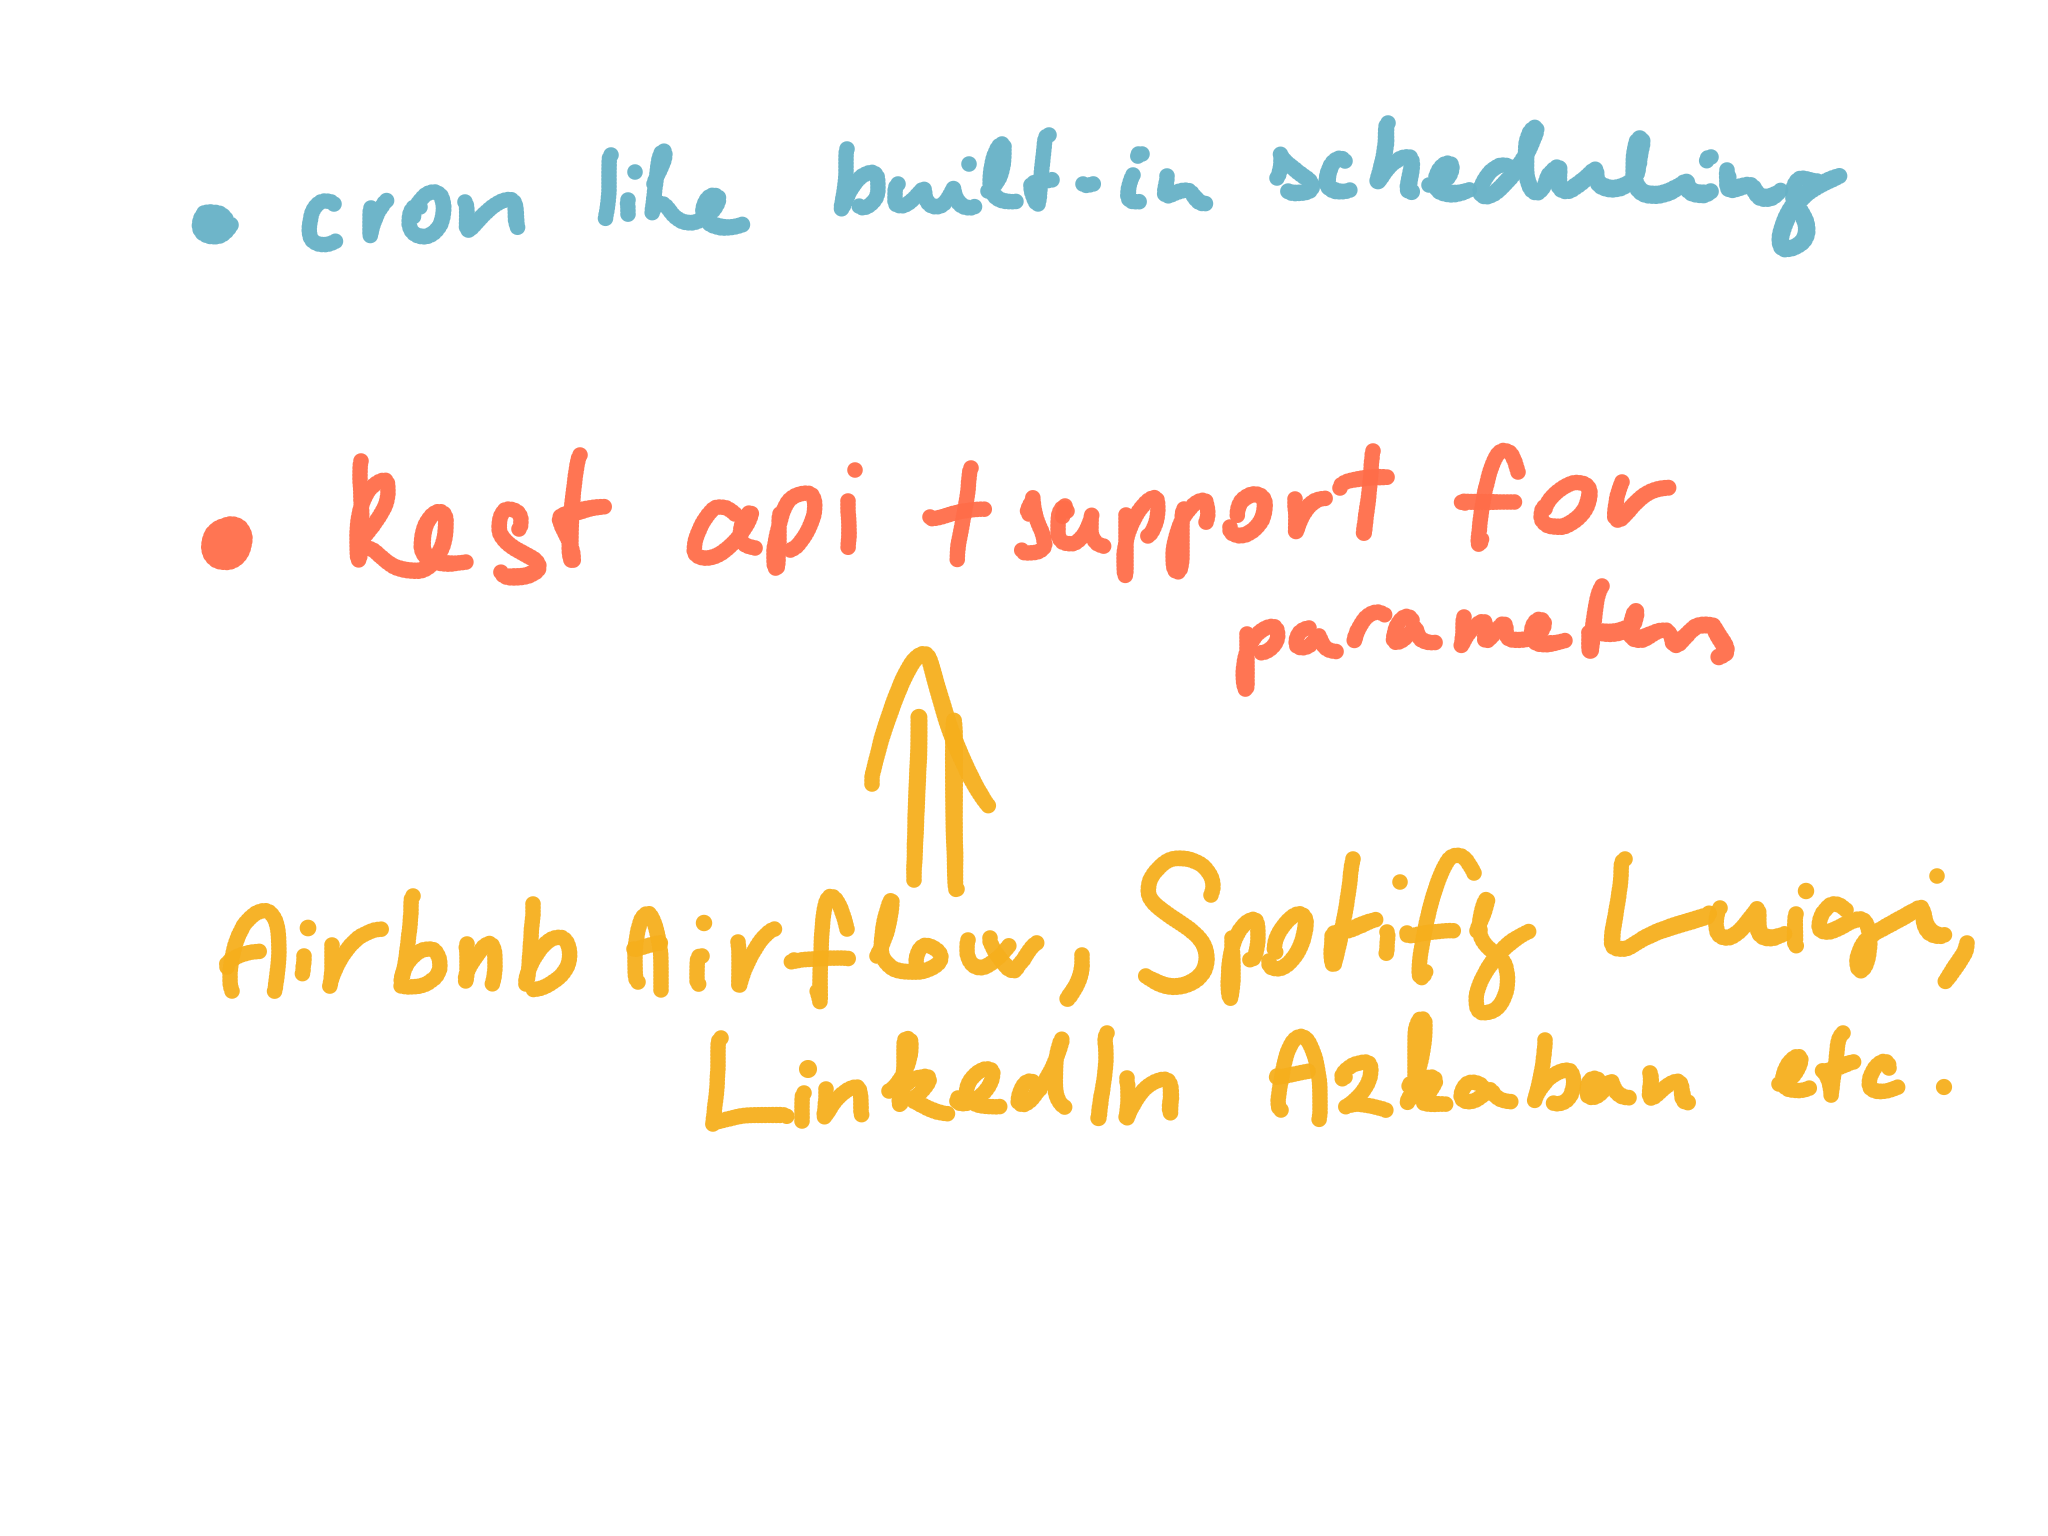 • cron like built-in scheduling
• Rest api + support for
parameters
Airbnb Airflow, Spotify Luigi,
LinkedIn Azkaban etc.